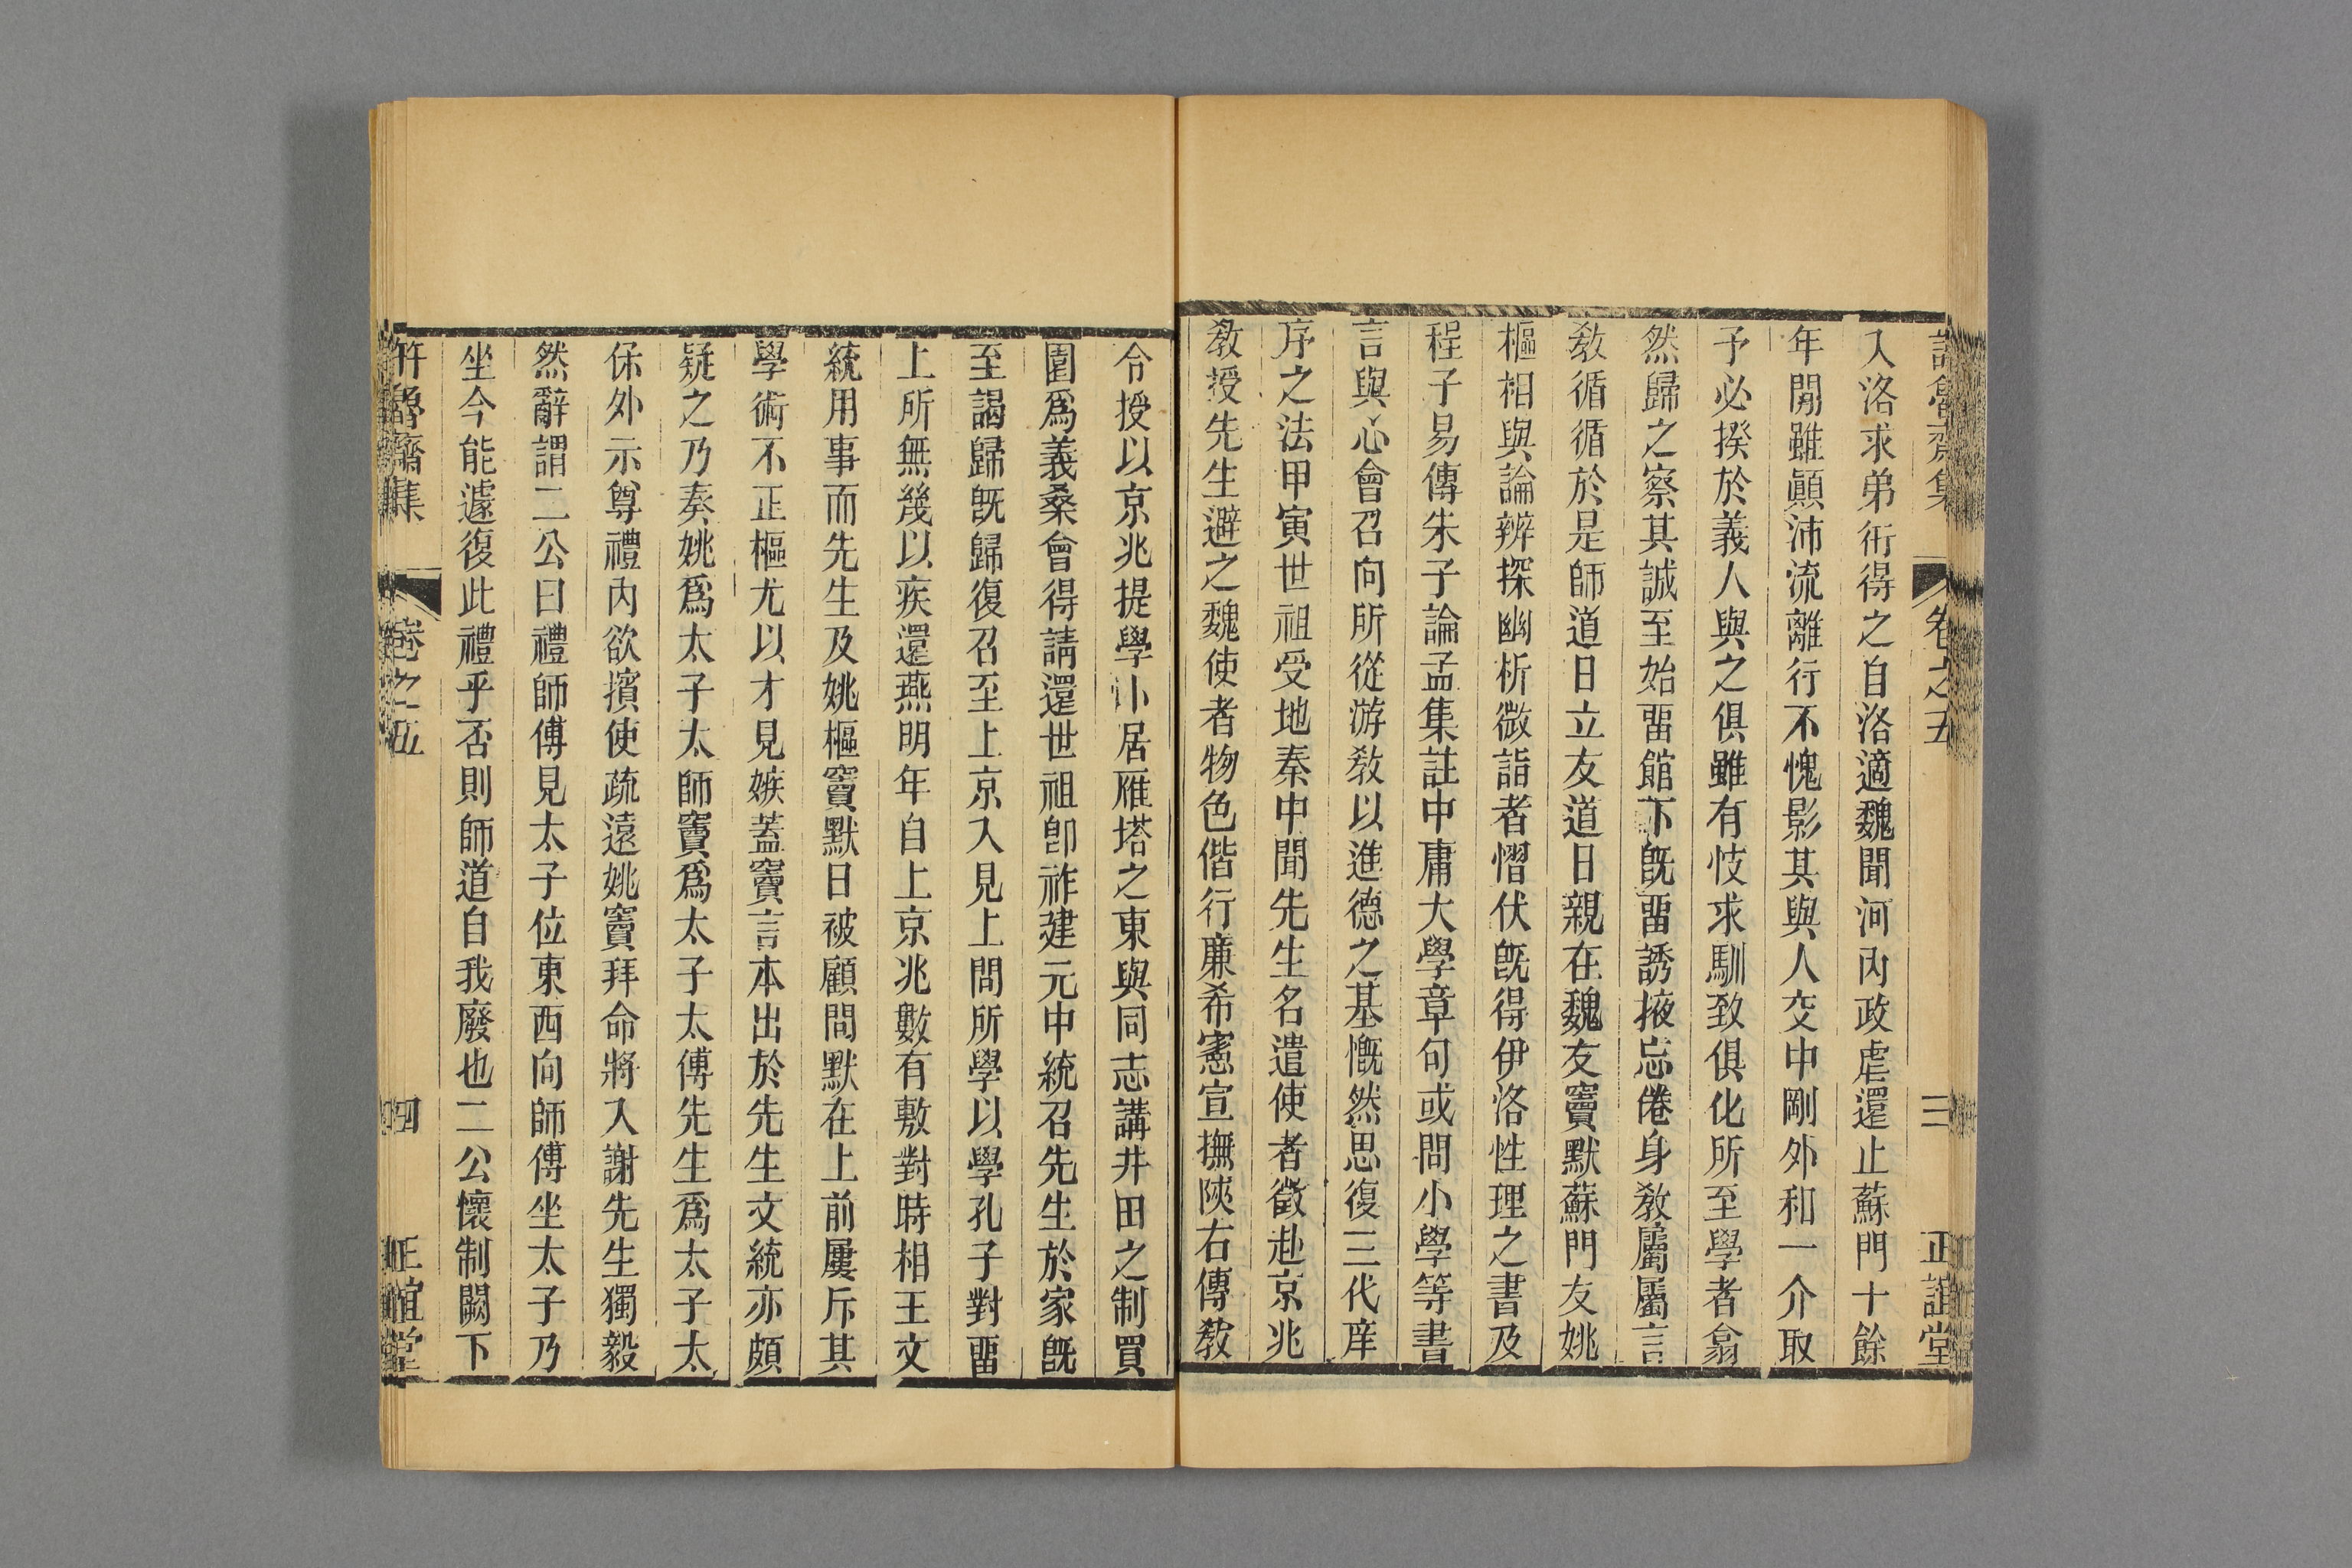 許魯齋集 卷之五 三 正誼堂
入洛求弟衎得之自洛適魏聞河內政虐還止蘇門十餘
年閒雖顚沛流離行不愧影其與人交中剛外和一介取
予必揆於義人與之俱雖有忮求馴致俱化所至學者翕
然歸之察其誠至始畱館下旣畱誘掖忘倦身敎屬屬言
敎循循於是師道日立友道日親在魏友竇默蘇門友姚
樞相與論辨探幽析微詣者慴伏旣得伊洛性理之書及
程子易傳朱子論孟集註中庸大學章句或問小學等書
言與心會召向所從游敎以進德之基慨然思復三代庠
序之法甲寅世祖受地秦中聞先生名遣使者徵赴京兆
敎授先生避之魏使者物色偕行廉希憲宣撫陝右傳敎
令授以京兆提學小居雁塔之東與同志講井田之制買
園爲義桑會得請還世祖卽祚建元中統召先生於家旣
至謁歸旣歸復召至上京入見上問所學以學孔子對畱
上所無幾以疾還燕明年自上京兆數有敷對時相王文
統用事而先生及姚樞竇默日被顧問默在上前屢斥其
學術不正樞尤以才見嫉蓋竇言本出於先生文統亦頗
疑之乃奏姚爲太子太師竇爲太子太傅先生爲太子太
保外示尊禮內欲擯使疏遠姚竇拜命將入謝先生獨毅
然辭謂二公曰禮師傅見太子位東西向師傅坐太子乃
坐今能遽復此禮乎否則師道自我廢也二公懷制闕下
許魯齋集 卷之五 四 正誼堂